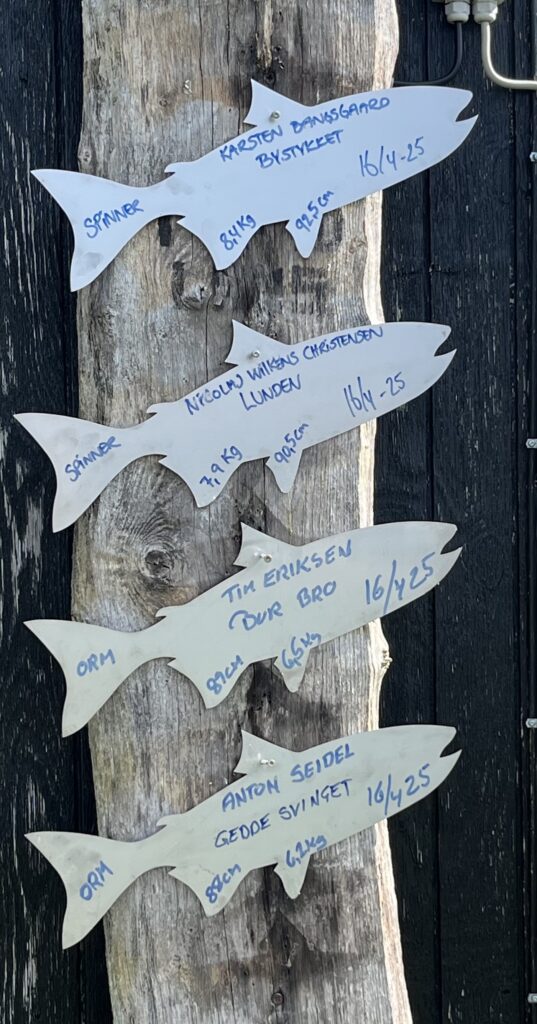 KARSTEN DANGSGAARD
BYSTYKKET
16/4-25
SPINNER
8,4 Kg
92,5cm
NICOLAJ WILKENS CHRISTENSEN
LUNDEN
16/4-25
SPINNER
7,9 Kg
90,5cm
TIM ERIKSEN
BUR BRO
16/4 25
ORM
87cm
6,5 Kg
ANTON SEIDEL
GEDDE SVINGET
16/4 25
ORM
88cm
6,2 Kg